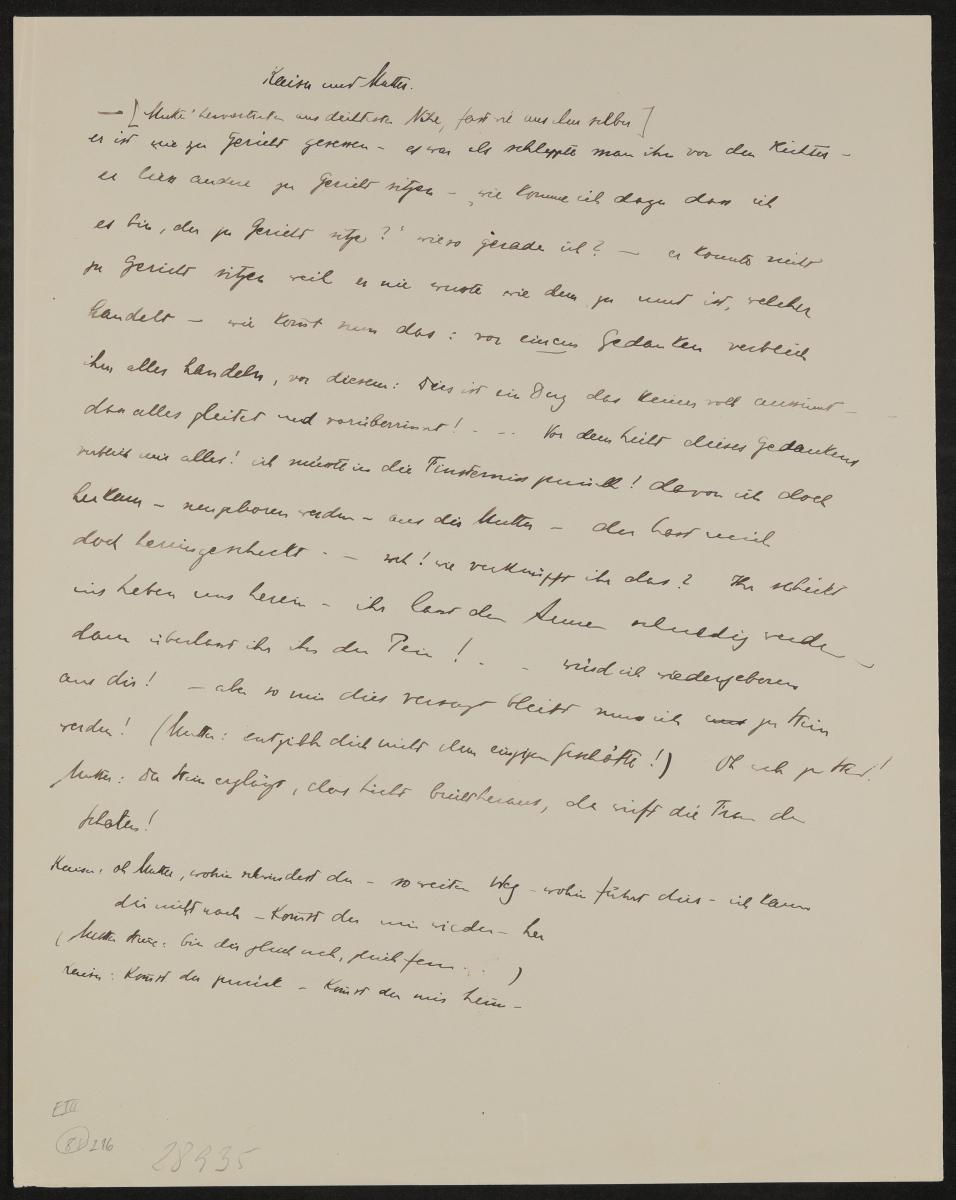 Kaiser und Mutter.
— [Mutter hervortretend aus dichtester Nähe, fast wie aus ihm selber]
er ist nie zu Gericht gesessen – es war als schleppte man ihn vor den Richter –
er liess andere zu Gericht sitzen – „wie komme ich dazu dass ich
es bin, der zu Gericht sitze?“ wieso gerade ich? — er konnte nicht
zu Gericht sitzen weil er nie wusste wie dem zu mut ist, welcher
handelt – wie kommt nun das: vor einem Gedanken verblich
ihm alles Handeln, vor diesem: Dies ist ein Ding das keiner voll aussinnt –
dass alles gleitet und vorüberrinnt! . – . Vor dem Licht dieses Gedankens
verblich mir alles! ich müsste in die Finsterniss zurück! davon ich doch
herkam – neugeboren werden – aus dir Mutter – du hast mich
doch hereingeschickt . – weh! wie verknüpft ihr das? Ihr schickt
ins Leben uns herein – ihr lasst den Armen schuldig werden –
dann überlasst ihr ihn der Pein! . – würd ich wiedergeboren
aus dir! – aber so mir dies versagt bleibt muss ich zu Stein
werden! (Mutter: entgibt dich nicht dem einzigen Geschöpfe!) Oh weh zu Stein!
Mutter: Der Stein erglüht, das Licht bricht heraus, da wirft die Frau den
Schatten!
Kaiser: oh Mutter, wohin schwindest du – so weiten Weg – wohin führt dies – ich kann
dir nicht nach – Kommst du mir wieder – her
(Mutter Stimme: bin dir gleich nah, gleich fern . . )
Kaiser: Kommst du zurück – Kommst du mir heim –
EIII
81 216
28935